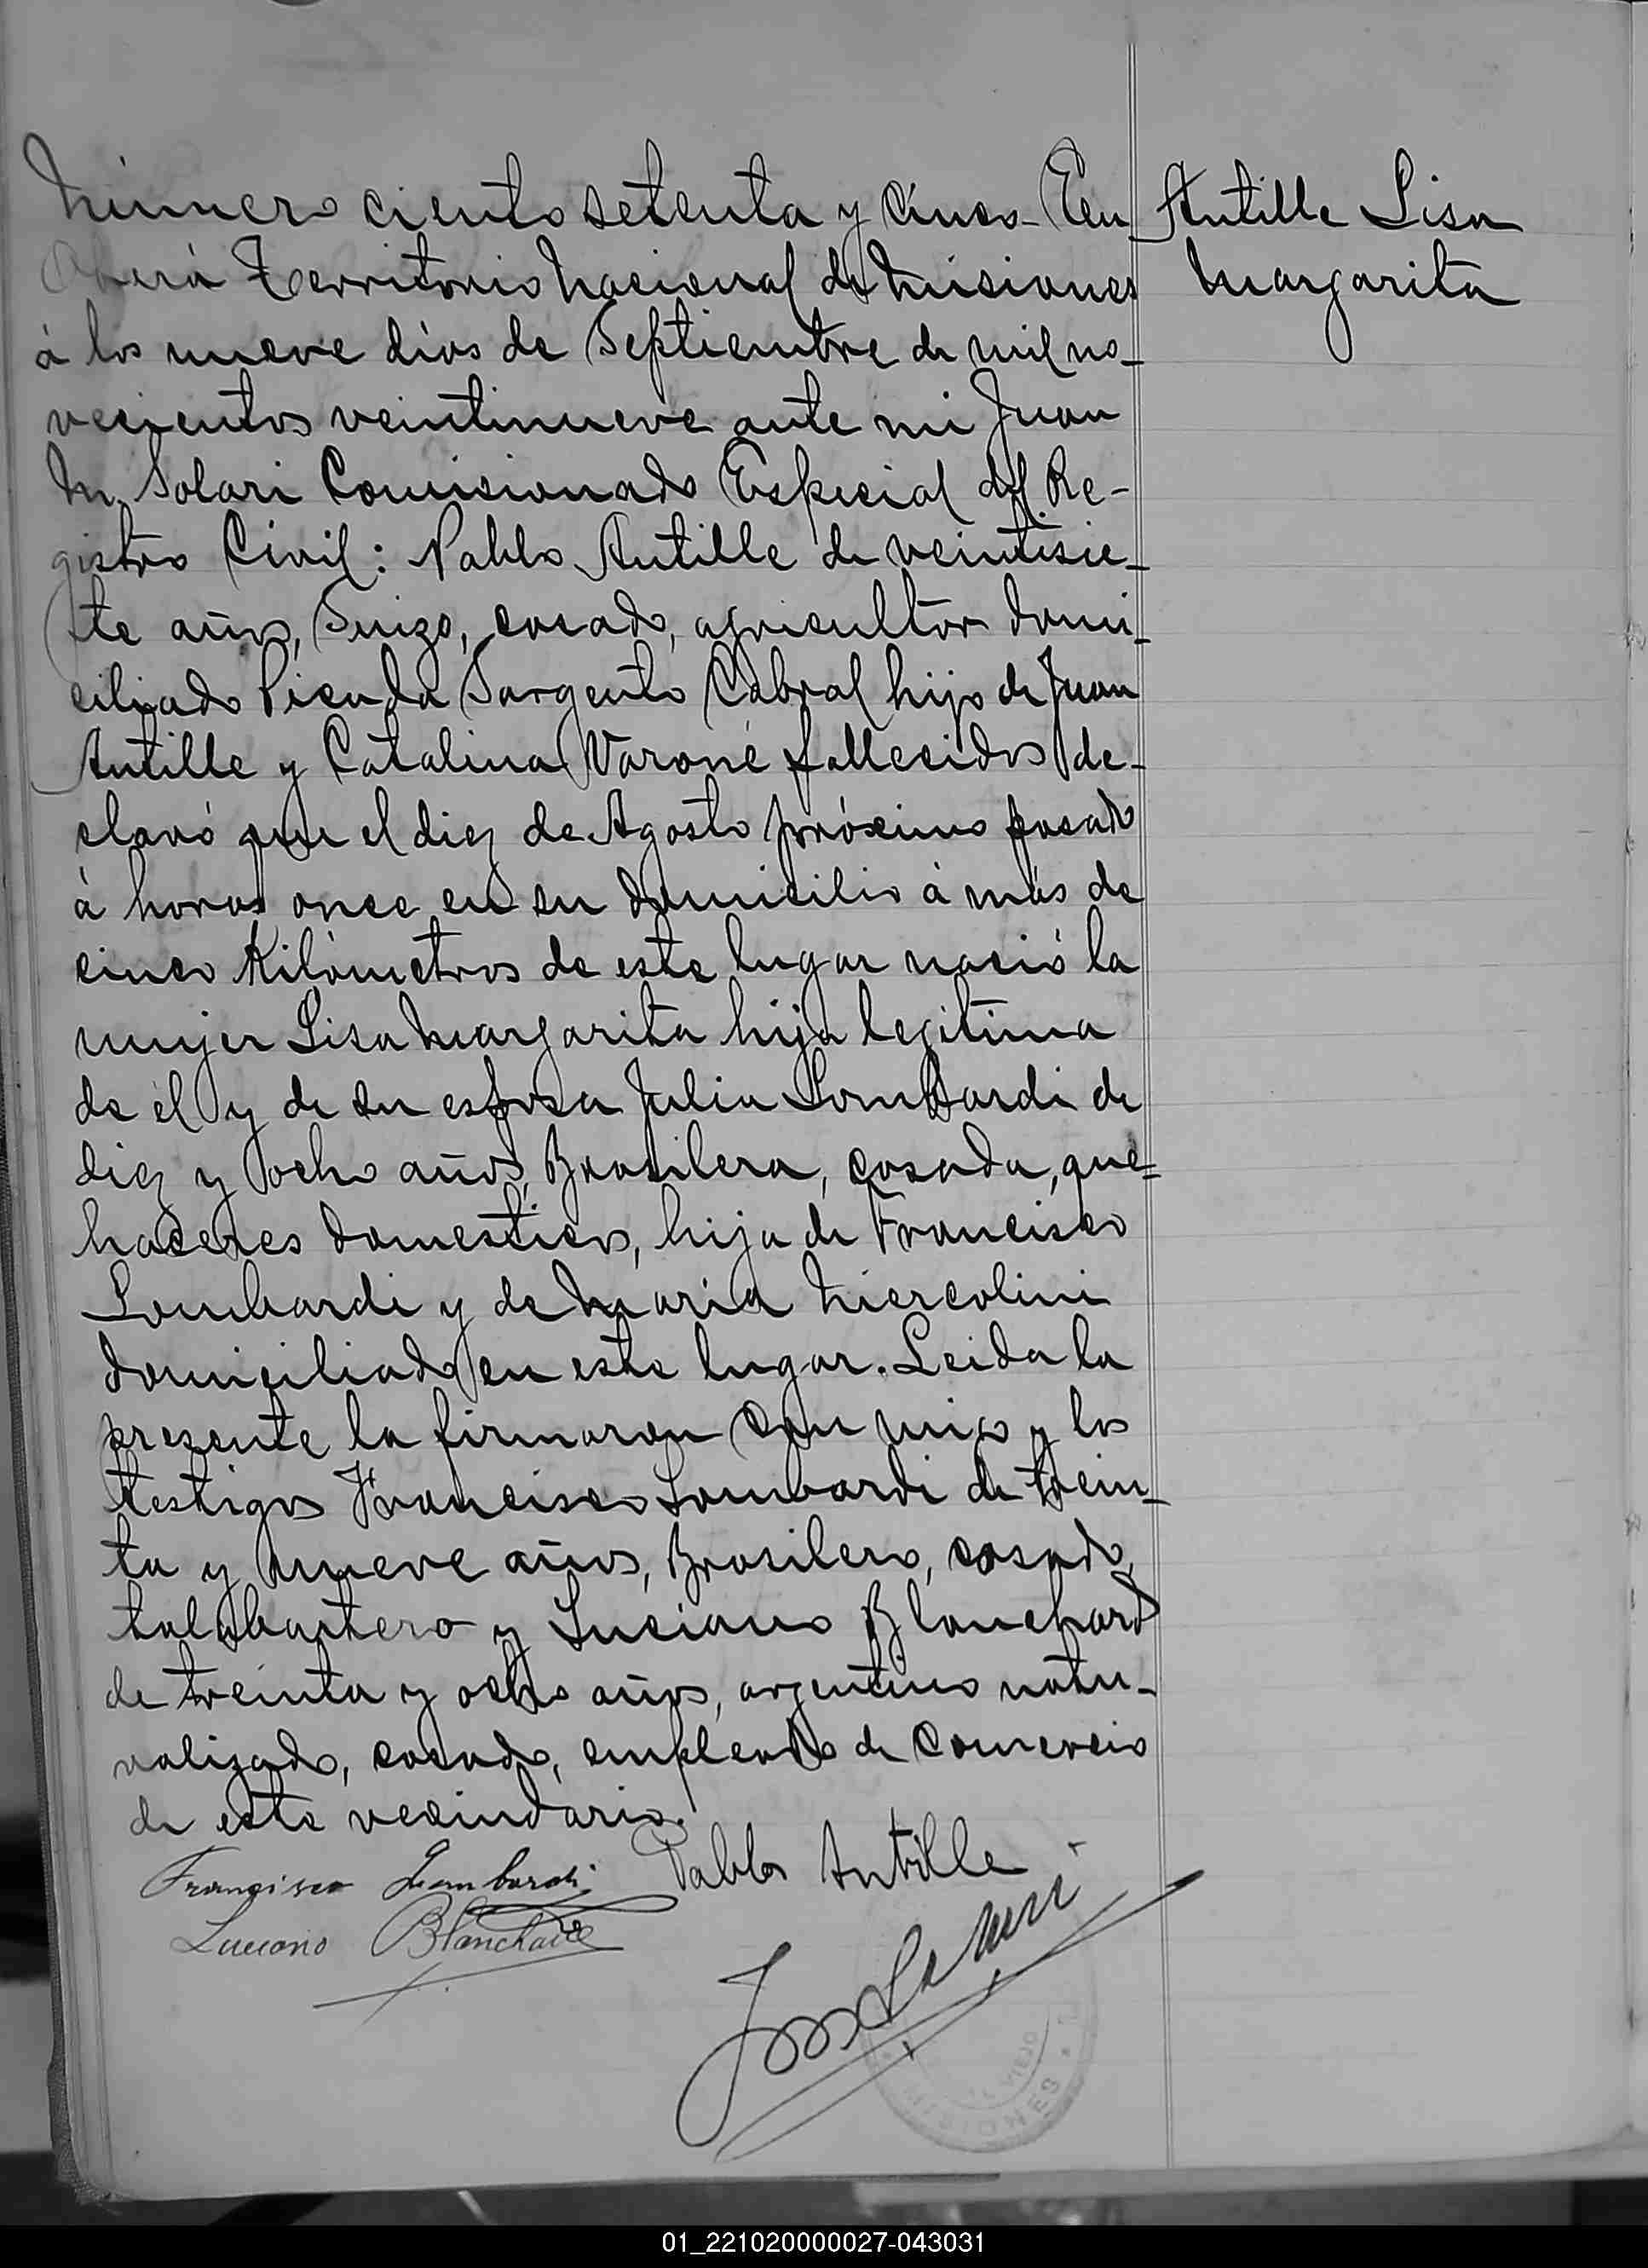 Número ciento setenta y cinco - En
Oberá Territorio Nacional de Misiones
á los nueve dias de Septiembre de mil no-
vecientos veintinueve ante mi Juan
M. Solari Comisionado Especial del Re-
gistro Civil: Pablo Antille de veintisie-
te años, Suizo, casado, agricultor domi-
ciliado Picada Sargento Cabral hijo de Juan
Antille y Catalina Varone fallecidos de-
claró que el diez de Agosto próximo pasado
á horas once en su domicilio á más de
cinco Kilómetros de este lugar nació la
mujer Lisa Margarita hija legitima
de él y de su esposa Julia Lombardi de
diez y ocho años, Brasilera, casada, que-
haceres domesticos, hija de Francisco
Lombardi y de Maria Miercolini
domiciliado en este lugar. Leida la
presente la firmaron con migo y los
testigos Francisco Lombardi de trein-
ta y nueve años, Brasilero, casado,
talabartero y Luciano Blanchard
de treinta y ocho años, argentino natu-
ralizado, casado, empleado de Comercio
de este vecindario.
Antille Lisa
Margarita
Francisco Lombardi
Pablo Antille
Luciano Blanchard
VIEJO
MISIONES
01_221020000027-043031